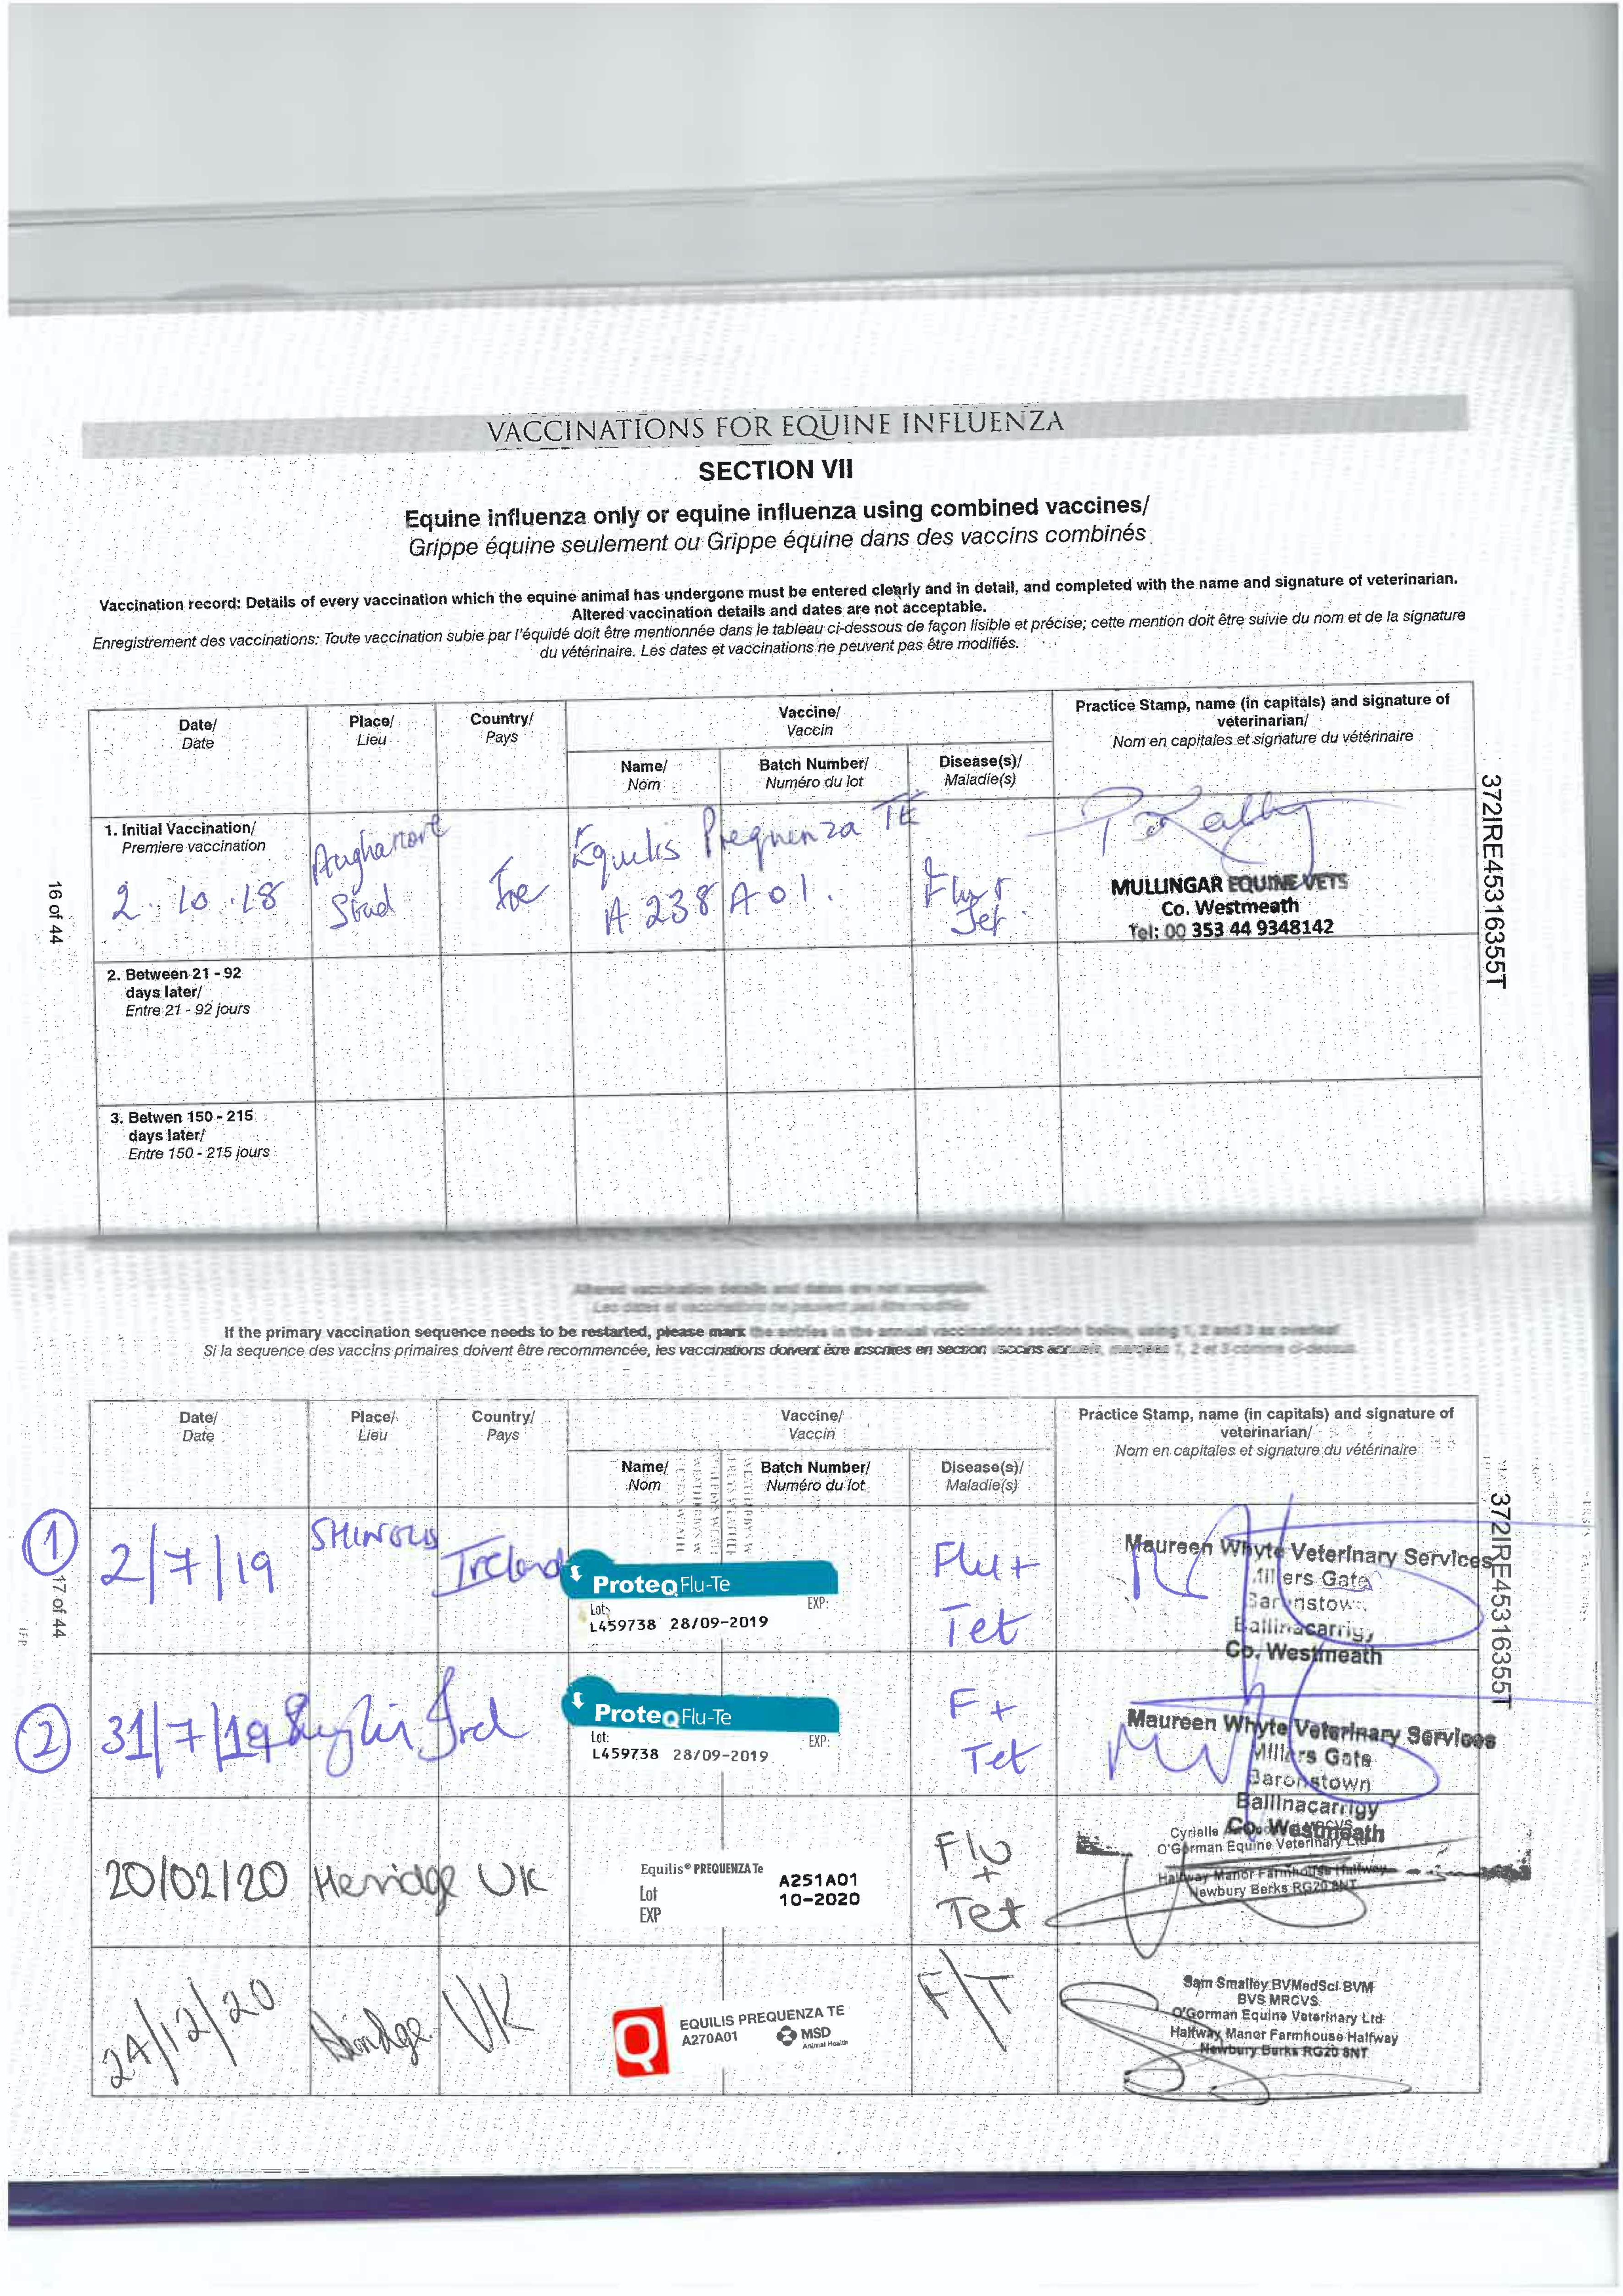 VACCINATIONS FOR EQUINE INFLUENZA
SECTION VII
Equine influenza only or equine influenza using combined vaccines/
Grippe équine seulement ou Grippe équine dans des vaccins combinés
Vaccination record: Details of every vaccination which the equine animal has undergone must be entered clearly and in detail, and completed with the name and signature of veterinarian.
Altered vaccination details and dates are not acceptable.
Enregistrement des vaccinations: Toute vaccination subie par l'équidé doit être mentionnée dans le tableau ci-dessous de façon lisible et précise; cette mention doit être suivie du nom et de la signature
du vétérinaire. Les dates et vaccinations ne peuvent pas être modifiés.
Date/
Date
Place/
Lieu
Country/
Pays
Vaccine/
Vaccin
Name/
Nom
Batch Number/
Numéro du lot
Disease(s)/
Maladie(s)
Practice Stamp, name (in capitals) and signature of
veterinarian/
Nom en capitales et signature du vétérinaire
1. Initial Vaccination/
Premiere vaccination
2.10.18
Stud
Ire
Equilis Prequenza TE
A238A01.
Flu +
Tet
MULLINGAR EQUINE VETS
Co. Westmeath
Tel: 00 353 44 9348142
2. Between 21 - 92
days later/
Entre 21 - 92 jours
3. Betwen 150 - 215
days later/
Entre 150 - 215 jours
16 of 44
372IRE45316355T
Altered vaccination details and dates are not acceptable.
Les dates et vaccinations ne peuvent pas être modifiés
If the primary vaccination sequence needs to be restarted, please mark the entries in the annual vaccinations section below, using 1, 2 and 3 as
Si la sequence des vaccins primaires doivent être recommencée, les vaccinations doivent être inscrites en section vaccins 1, 2 et 3 comme ci-dessus.
Date/
Date
Place/
Lieu
Country/
Pays
Vaccine/
Vaccin
Name/
Nom
Batch Number/
Numéro du lot
Disease(s)/
Maladie(s)
Practice Stamp, name (in capitals) and signature of
veterinarian/
Nom en capitales et signature du vétérinaire
1
2/7/19
Ireland
ProteqFlu-Te
Lot:
EXP:
L459738 28/09-2019
Flu +
Tet
Maureen Whyte Veterinary Services
Millers Gate
Baronstown
Ballinacarrigy
Co. Westmeath
2
31/7/19
Irel
ProteqFlu-Te
Lot:
EXP:
L459738 28/09-2019
F +
Tet
Maureen Whyte Veterinary Services
Millers Gate
Baronstown
Ballinacarrigy
Co. Westmeath
20/02/20
Herridge
UK
Equilis® PREQUENZA Te
Lot
EXP
A251A01
10-2020
Flu
+
Tet
Cyrielle
O'Gorman Equine Veterinary Ltd
Halfway Manor Farmhouse Halfway
Newbury Berks RG20 8NT
24/12/20
Herridge
UK
Q
EQUILIS PREQUENZA TE
A270A01
MSD
Animal Health
F/T
Sam Smalley BVMedSci BVM
BVS MRCVS
O'Gorman Equine Veterinary Ltd
Halfway Manor Farmhouse Halfway
Newbury Berks RG20 8NT
17 of 44
372IRE45316355T